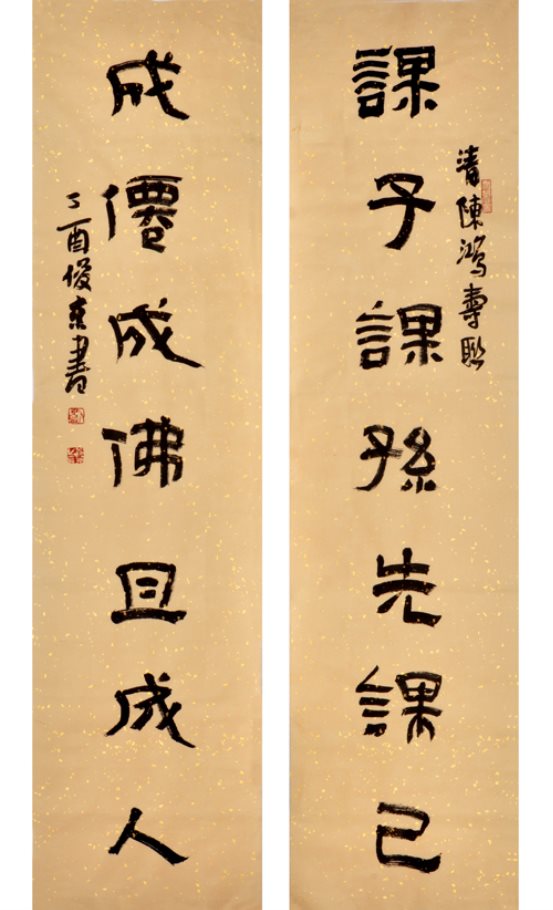 課子課孫先課己
清陳鴻壽聯
成僊成佛且成人
丁酉俊东書